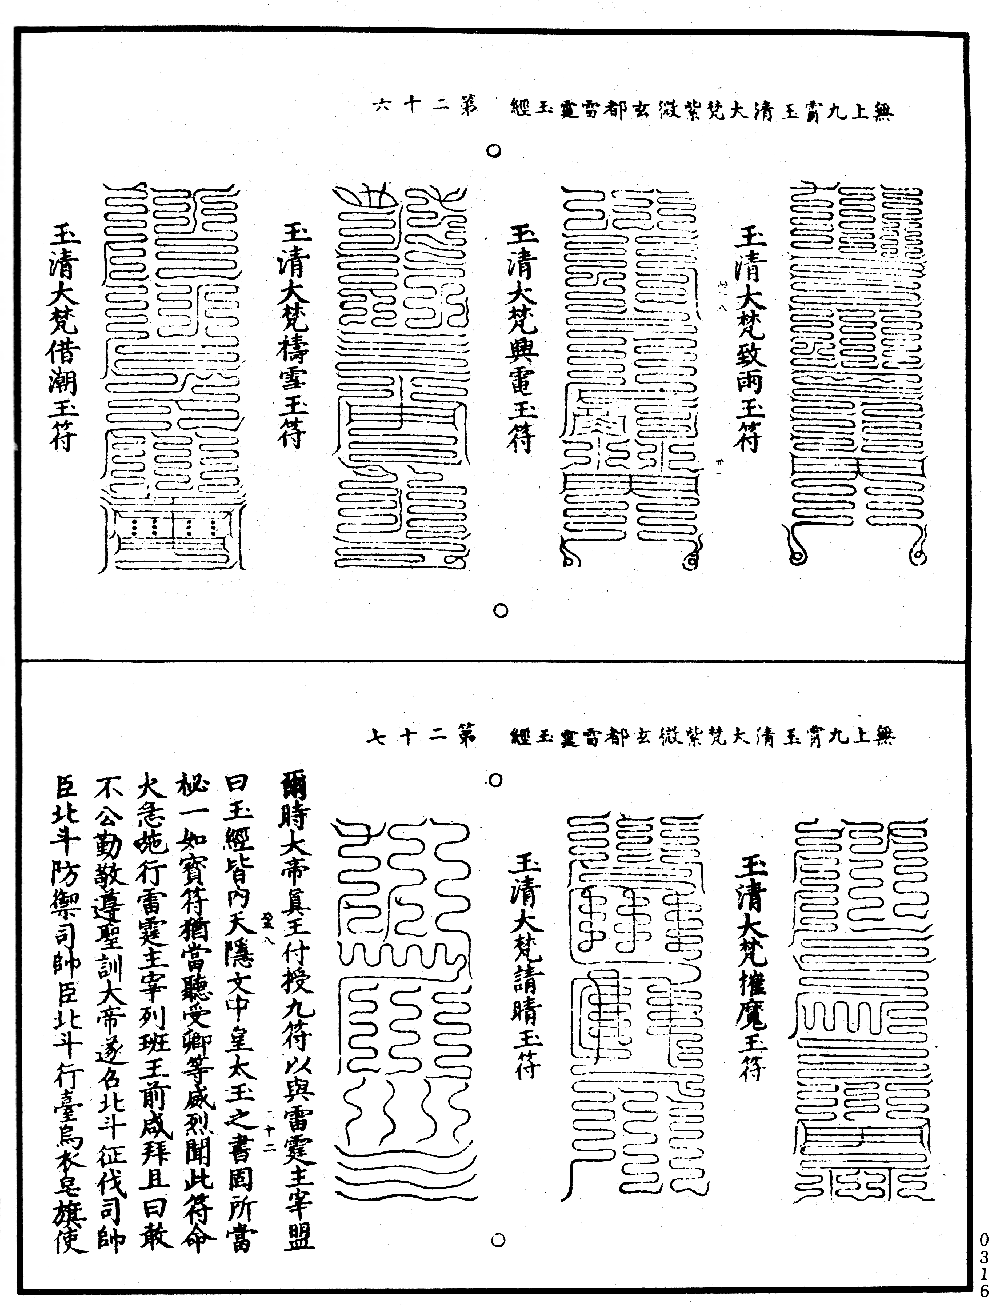 無上九霄玉清大梵紫微玄都雷霆玉經 第二十六
玉清大梵致雨玉符
玉清大梵興電玉符
玉清大梵禱雪玉符
玉清大梵借潮玉符
無上九霄玉清大梵紫微玄都雷霆玉經 第二十七
玉清大梵摧魔玉符
玉清大梵請晴玉符
爾時大帝真王付授九符以與雷霆主宰盟
曰玉經皆內天隱文中皇太王之書固所當
祕一如寶符猶當聽受卿等威烈聞此符命
火急施行雷霆主宰列班王前咸拜且曰敢
不公勤敬遵聖訓大帝遂召北斗征伐司帥
臣北斗防禦司帥臣北斗行臺烏衣皂旗使
0316